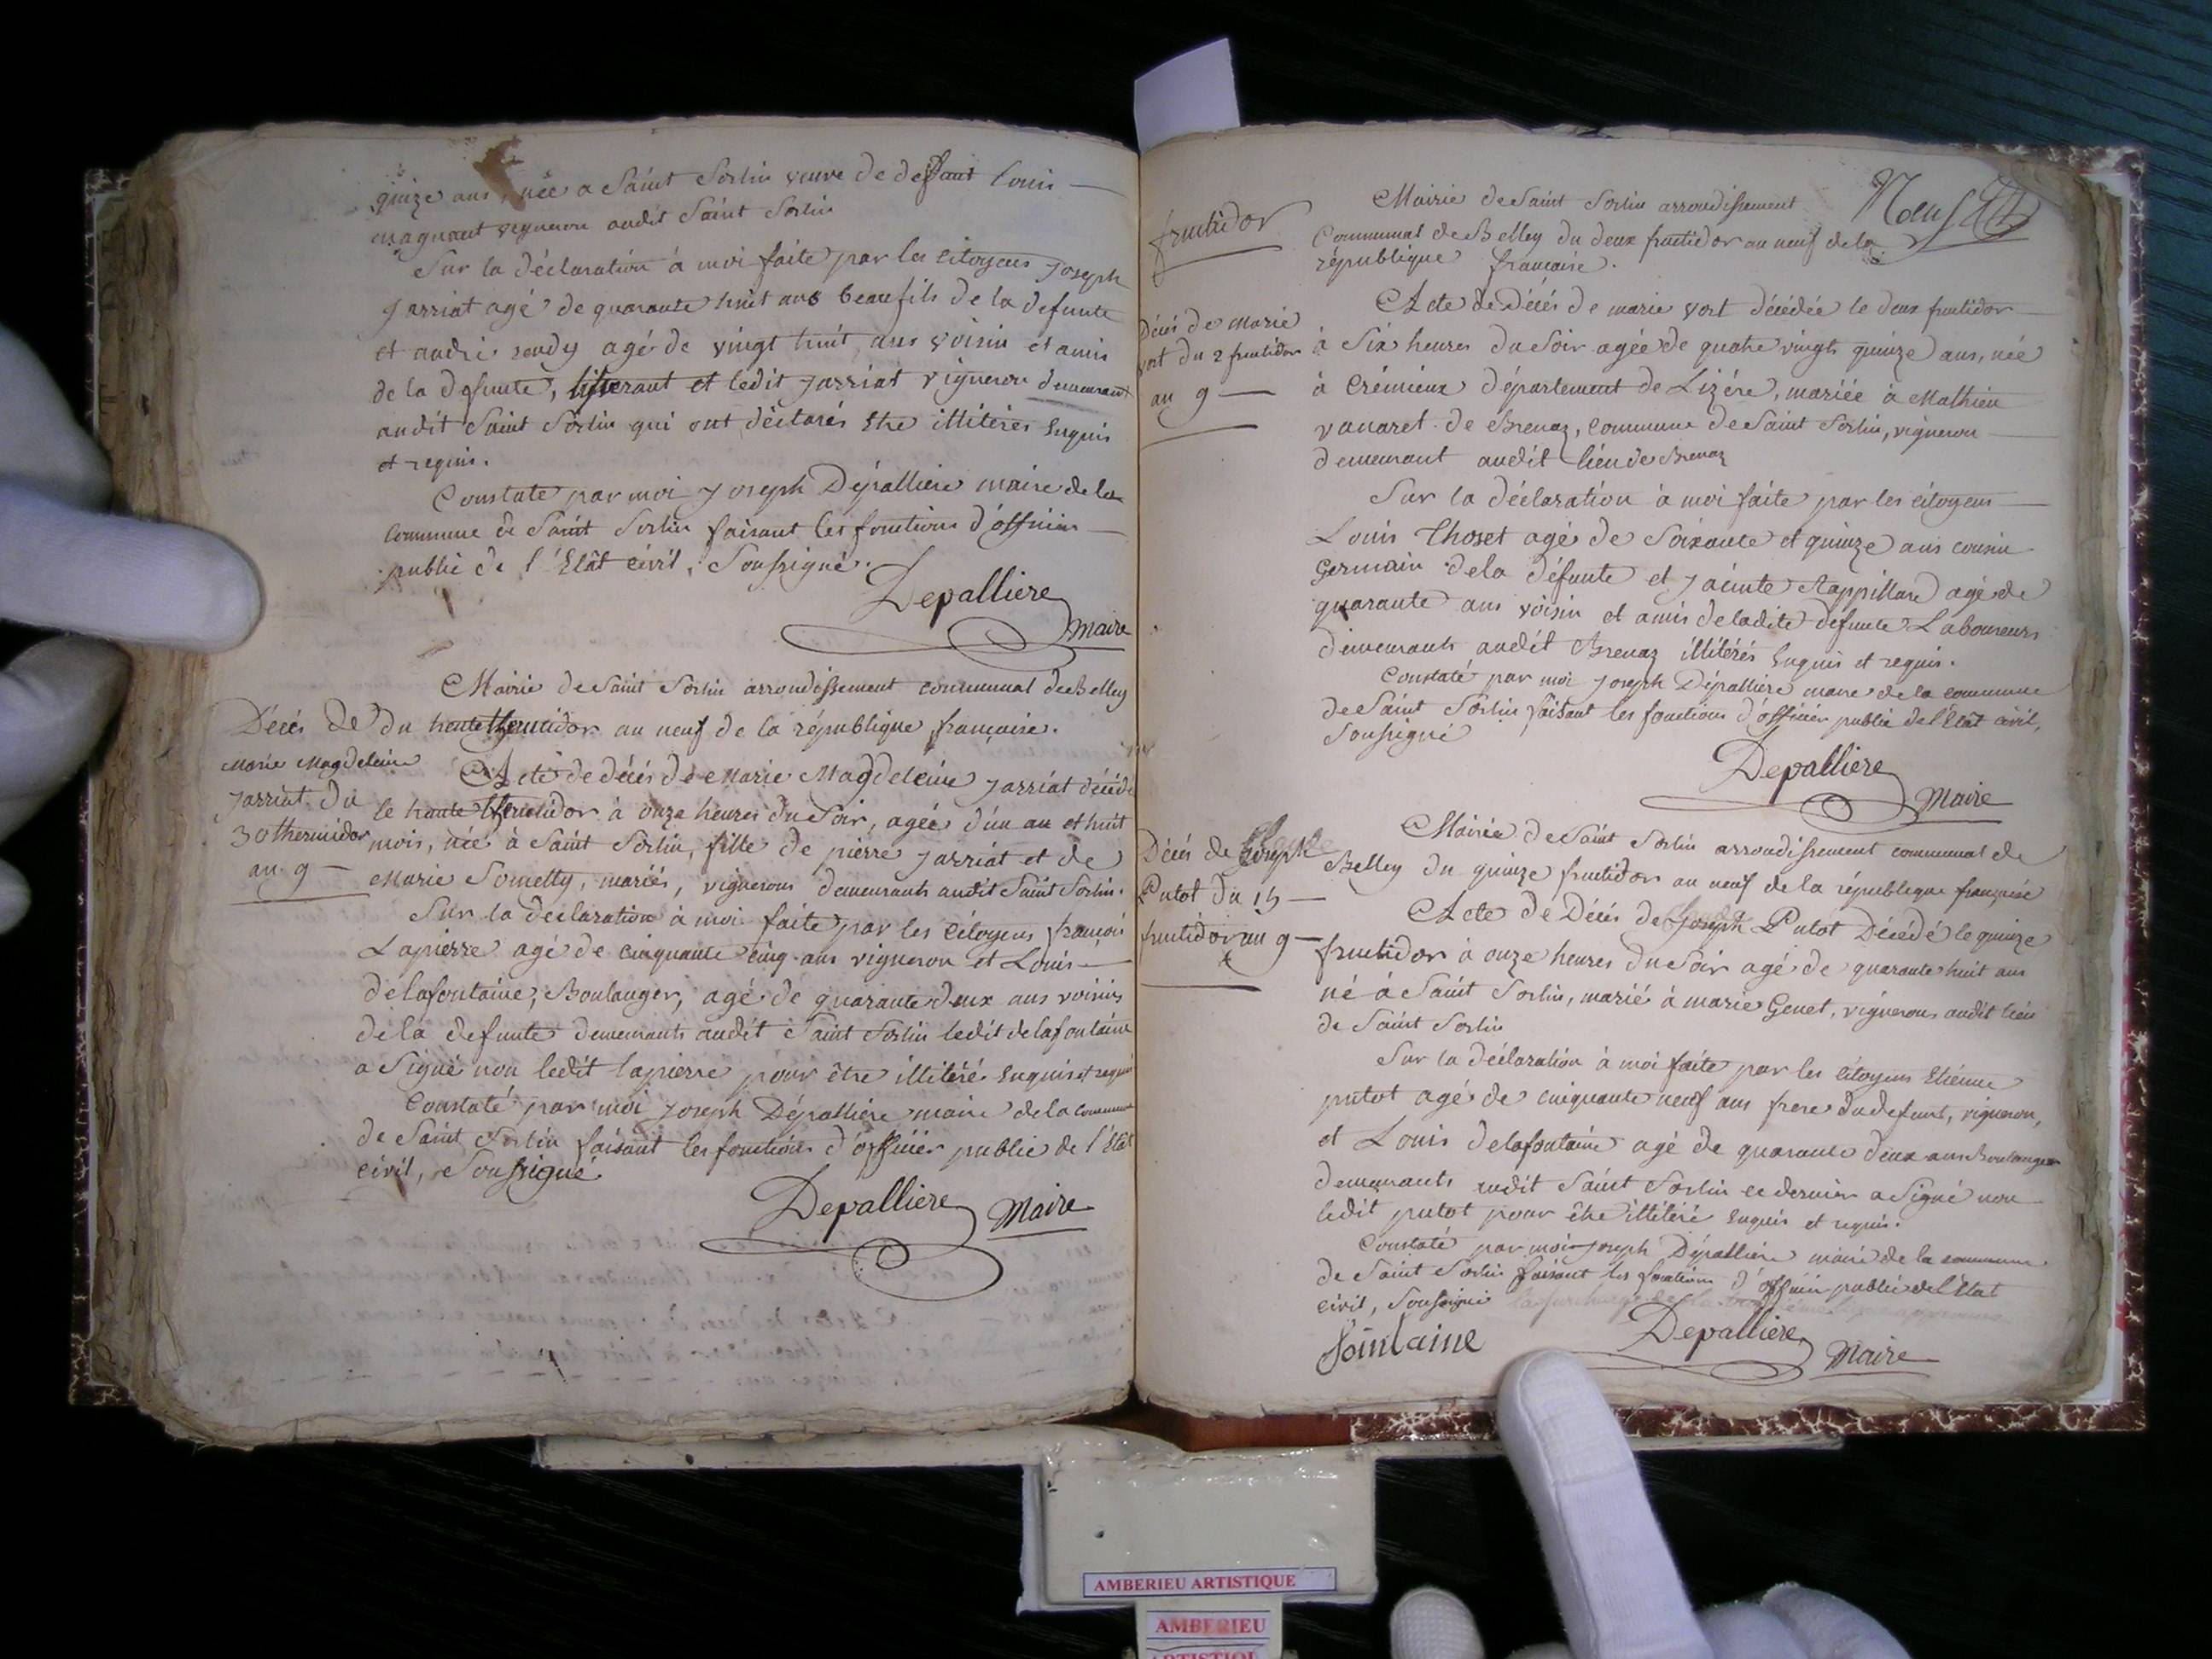 quinze ans, née a Saint Sorlin veuve de defaut Louis
magnant vigneron audit Saint Sorlin
Sur la déclaration à moi faite par les citoyens Joseph
Jarriat agé de quarante huit ans beaufils de la defunte
et andré rendy agé de vingt huit ans voisin et amis
de la defunte, et ledit Jarriat vigneron demeurant
audit Saint Sorlin qui ont déclarés Etre illitérés Enquis
et requis.
Constaté par moi Joseph Dépallière maire de la
commune de Saint Sorlin faisant les fonctions d'officier
public de l'Etât civil, Soussigné.
Depalliere
Maire
Mairie de Saint Sorlin arrondissement communal de Belley
du trente thermidor an neuf de la république française.
Décés de
Marie Magdeleine
Jarriat du
30 thermidor
an 9
Acte de décés de Marie Magdeleine Jarriat décédé
le trente thermidor à onze heures du Soir, agée d'un an et huit
mois, née à Saint Sorlin, fille de pierre Jarriat et de
Marie Sometty, mariés, vignerons demeurants audit Saint Sorlin.
Sur la déclaration à moi faite par les citoyens françois
Lapierre agé de cinquante cinq ans vigneron et Louis
delafontaine, Boulanger, agé de quarante deux ans voisins
de la defunte demeurants audit Saint Sorlin ledit delafontaine
a Signé non ledit lapierre pour être illitéré Enquis et requis
Constaté par moi Joseph Dépallière maire de la commune
de Saint Sorlin faisant les fonctions d'officier public de l'Etât
civil, Soussigné
Depalliere Maire
fructidor
Mairie de Saint Sorlin arrondissement
Communal de Belley du deux fructidor an neuf de la
république française.
Décés de Marie
vort du 2 fructidor
an 9
Acte de Décés de marie vort décédée le deux fructidor
à Six heures du Soir agée de quatre vingts quinze ans, née
à Crémieux département de Lizére, mariée à Mathieu
vanaret de Brenaz, commune de Saint Sorlin, vigneron
demeurant audit lieu de Brenaz
Sur la déclaration à moi faite par les citoyens
Louis Thoset agé de Soixante et quinze ans cousin
Germain de la défunte et Jacinte Rappillard agé de
quarante ans voisin et amis de ladite defunte Laboureurs
demeurants audit Brenaz illitérés Enquis et requis.
Constaté par moi Joseph Dépallière maire de la commune
de Saint Sorlin faisant les fonctions d'officier public de l'Etât civil,
Soussigné
Depalliere
Maire
Mairie de Saint Sorlin arrondissement communal de
Belley du quinze fructidor an neuf de la république française
Décés de Joseph
Putot du 15
fructidor an 9
Acte de Décés de Joseph Putot Décédé le quinze
fructidor à onze heures du Soir agé de quarante huit ans
né à Saint Sorlin, marié à marie Genet, vignerons audit lieu
de Saint Sorlin
Sur la déclaration à moi faite par les citoyens Etienne
putot agé de cinquante neuf ans frere du defunt, vigneron,
et Louis delafontaine agé de quarante deux ans Boulanger
demeurants audit Saint Sorlin ce dernier a Signé non
ledit putot pour être illitéré Enquis et requis.
Constaté par moi Joseph Dépallière maire de la commune
de Saint Sorlin faisant les fonctions d'officier public de l'Etat
civil, Soussigné
fointaine
Depalliere
Maire
AMBERIEU ARTISTIQUE
AMBERIEU
ARTISTIQUE